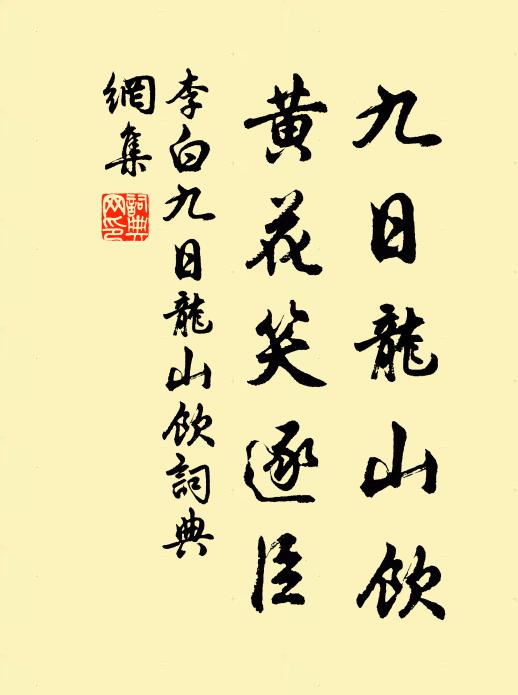 九日龍山飲
黃花笑逐臣
李白九日龍山飲詞典
網集
詞典
网印